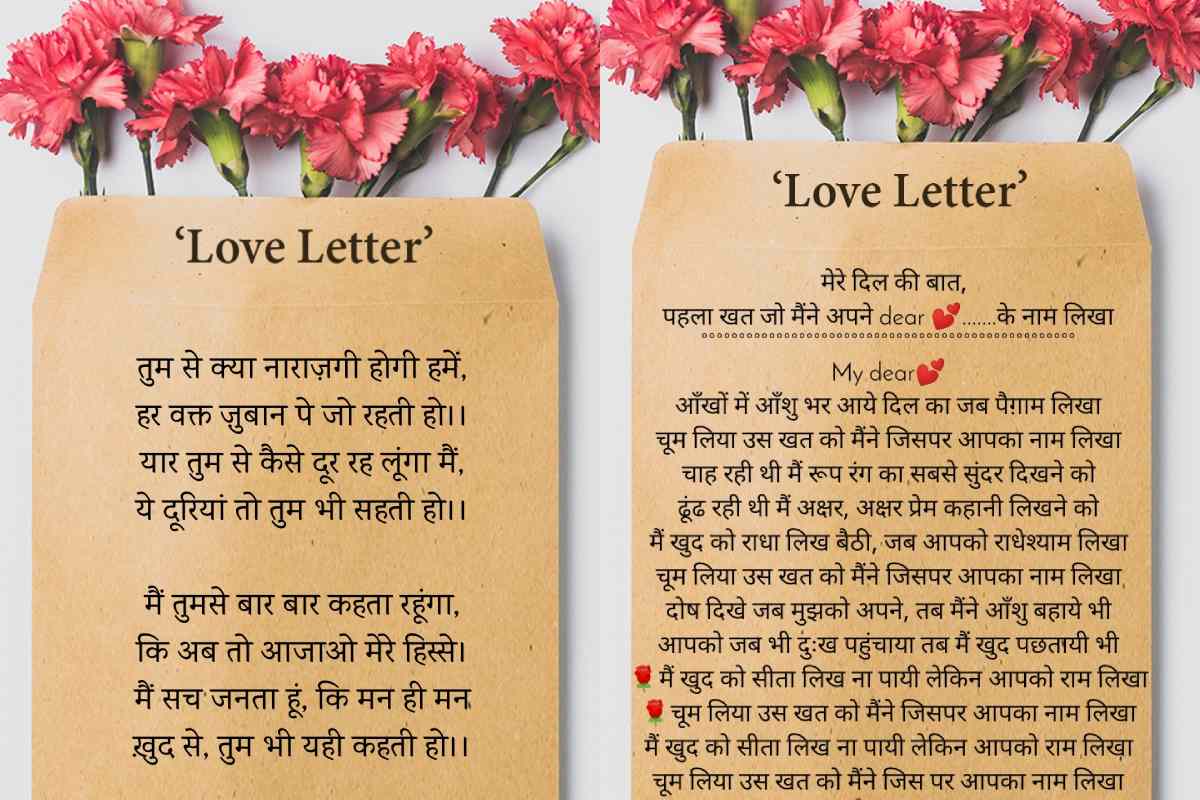 ‘Love Letter’
तुम से क्या नाराज़गी होगी हमें,
हर वक्त ज़ुबान पे जो रहती हो।।
यार तुम से कैसे दूर रह लूंगा मैं,
ये दूरियां तो तुम भी सहती हो।।
मैं तुमसे बार बार कहता रहूंगा,
कि अब तो आजाओ मेरे हिस्से।
मैं सच जनता हूं, कि मन ही मन
ख़ुद से, तुम भी यही कहती हो।।
‘Love Letter’
मेरे दिल की बात,
पहला खत जो मैंने अपने dear 💕.......के नाम लिखा
°°°°°°°°°°°°°°°°°°°°°°°°°°°°°°°°°°°°°°°°°°°°°°°°
My dear💕
आँखों में आँशु भर आये दिल का जब पैग़ाम लिखा
चूम लिया उस खत को मैंने जिसपर आपका नाम लिखा
चाह रही थी मैं रूप रंग का सबसे सुंदर दिखने को
ढूंढ रही थी मैं अक्षर, अक्षर प्रेम कहानी लिखने को
मैं खुद को राधा लिख बैठी, जब आपको राधेश्याम लिखा
चूम लिया उस खत को मैंने जिसपर आपका नाम लिखा
दोष दिखे जब मुझको अपने, तब मैंने आँशु बहाये भी
आपको जब भी दुःख पहुंचाया तब मैं खुद पछतायी भी
🌹मैं खुद को सीता लिख ना पायी लेकिन आपको राम लिखा
🌹चूम लिया उस खत को मैंने जिसपर आपका नाम लिखा
मैं खुद को सीता लिख ना पायी लेकिन आपको राम लिखा
चूम लिया उस खत को मैंने जिस पर आपका नाम लिखा